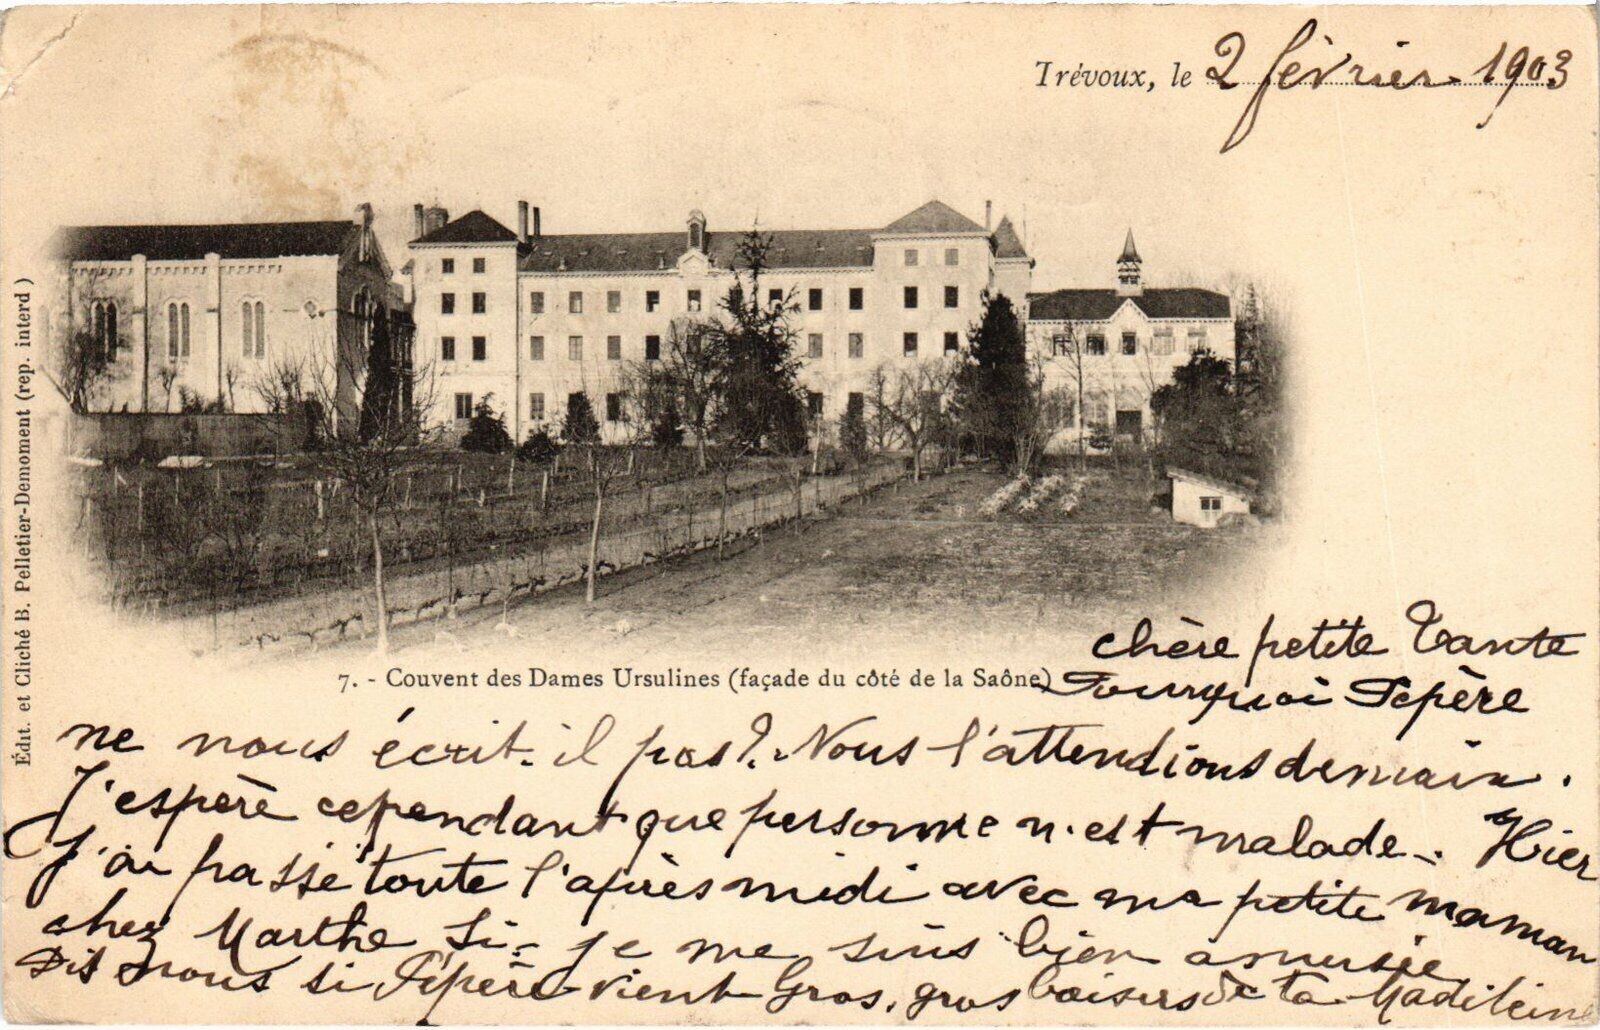 Trévoux, le 2 février 1903
Édit. et Cliché B. Pelletier-Demoment (rep. interd)
7. - Couvent des Dames Ursulines (façade du côté de la Saône)
chère petite Tante
Pourquoi Pépère
ne nous écrit-il pas?. Nous l'attendions demain.
J'espère cependant que personne n'est malade. Hier
J'ai passé toute l'après midi avec ma petite maman
chez Marthe Si- je me suis bien amusée
Dis nous si Pépère vient Gros, gros baisers de ta Madeleine